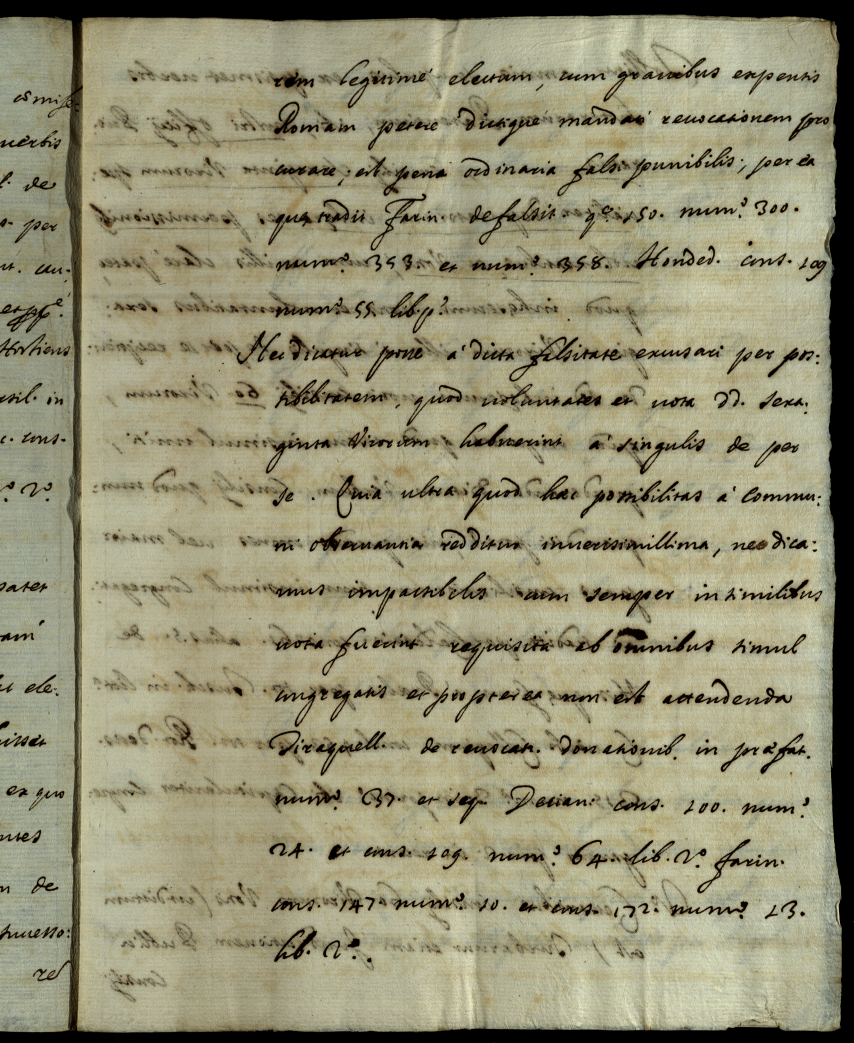 comiss
uerbis
de
per
cau:
et ppē.
in
cons.
n.º 2.º
ele:
ex quo
de
successo:
re
rem legitimé electam, cum grauibus expensis
Romam petere dictiqué mandati reuocationem pro
curare; est pena ordinaria falsi punibilis; per ea
que tradit Farin. de falsit. q.e 150. num.º 300.
num.º 353. et num.º 358. Honded. cons. 109
num.º 55 lib. p.º
Nec dicatur posse á dicta falsitate excusari per pos:
sibilitatem, quod uoluntates et uota DD. sexa:
ginta Virorum habuerint á singulis de per
se. Quia ultra quod hac possibilitas á commu:
ni obseruantia redditur inuerisimillima, ne dica:
mus impossibilis cum semper in similibus
uota fuerint requisita ab omnibus simul
congregatis et propterea non est attendenda
Tiraquell. de reuocat. donationib. in præfat.
num.º 37. et seq. Decian. cons. 100. num.º
24. et cons. 109. num.º 64. lib. 2.º farin.
cons. 147 num.º 10. et cons. 172. num.º 13.
lib. 2.º.